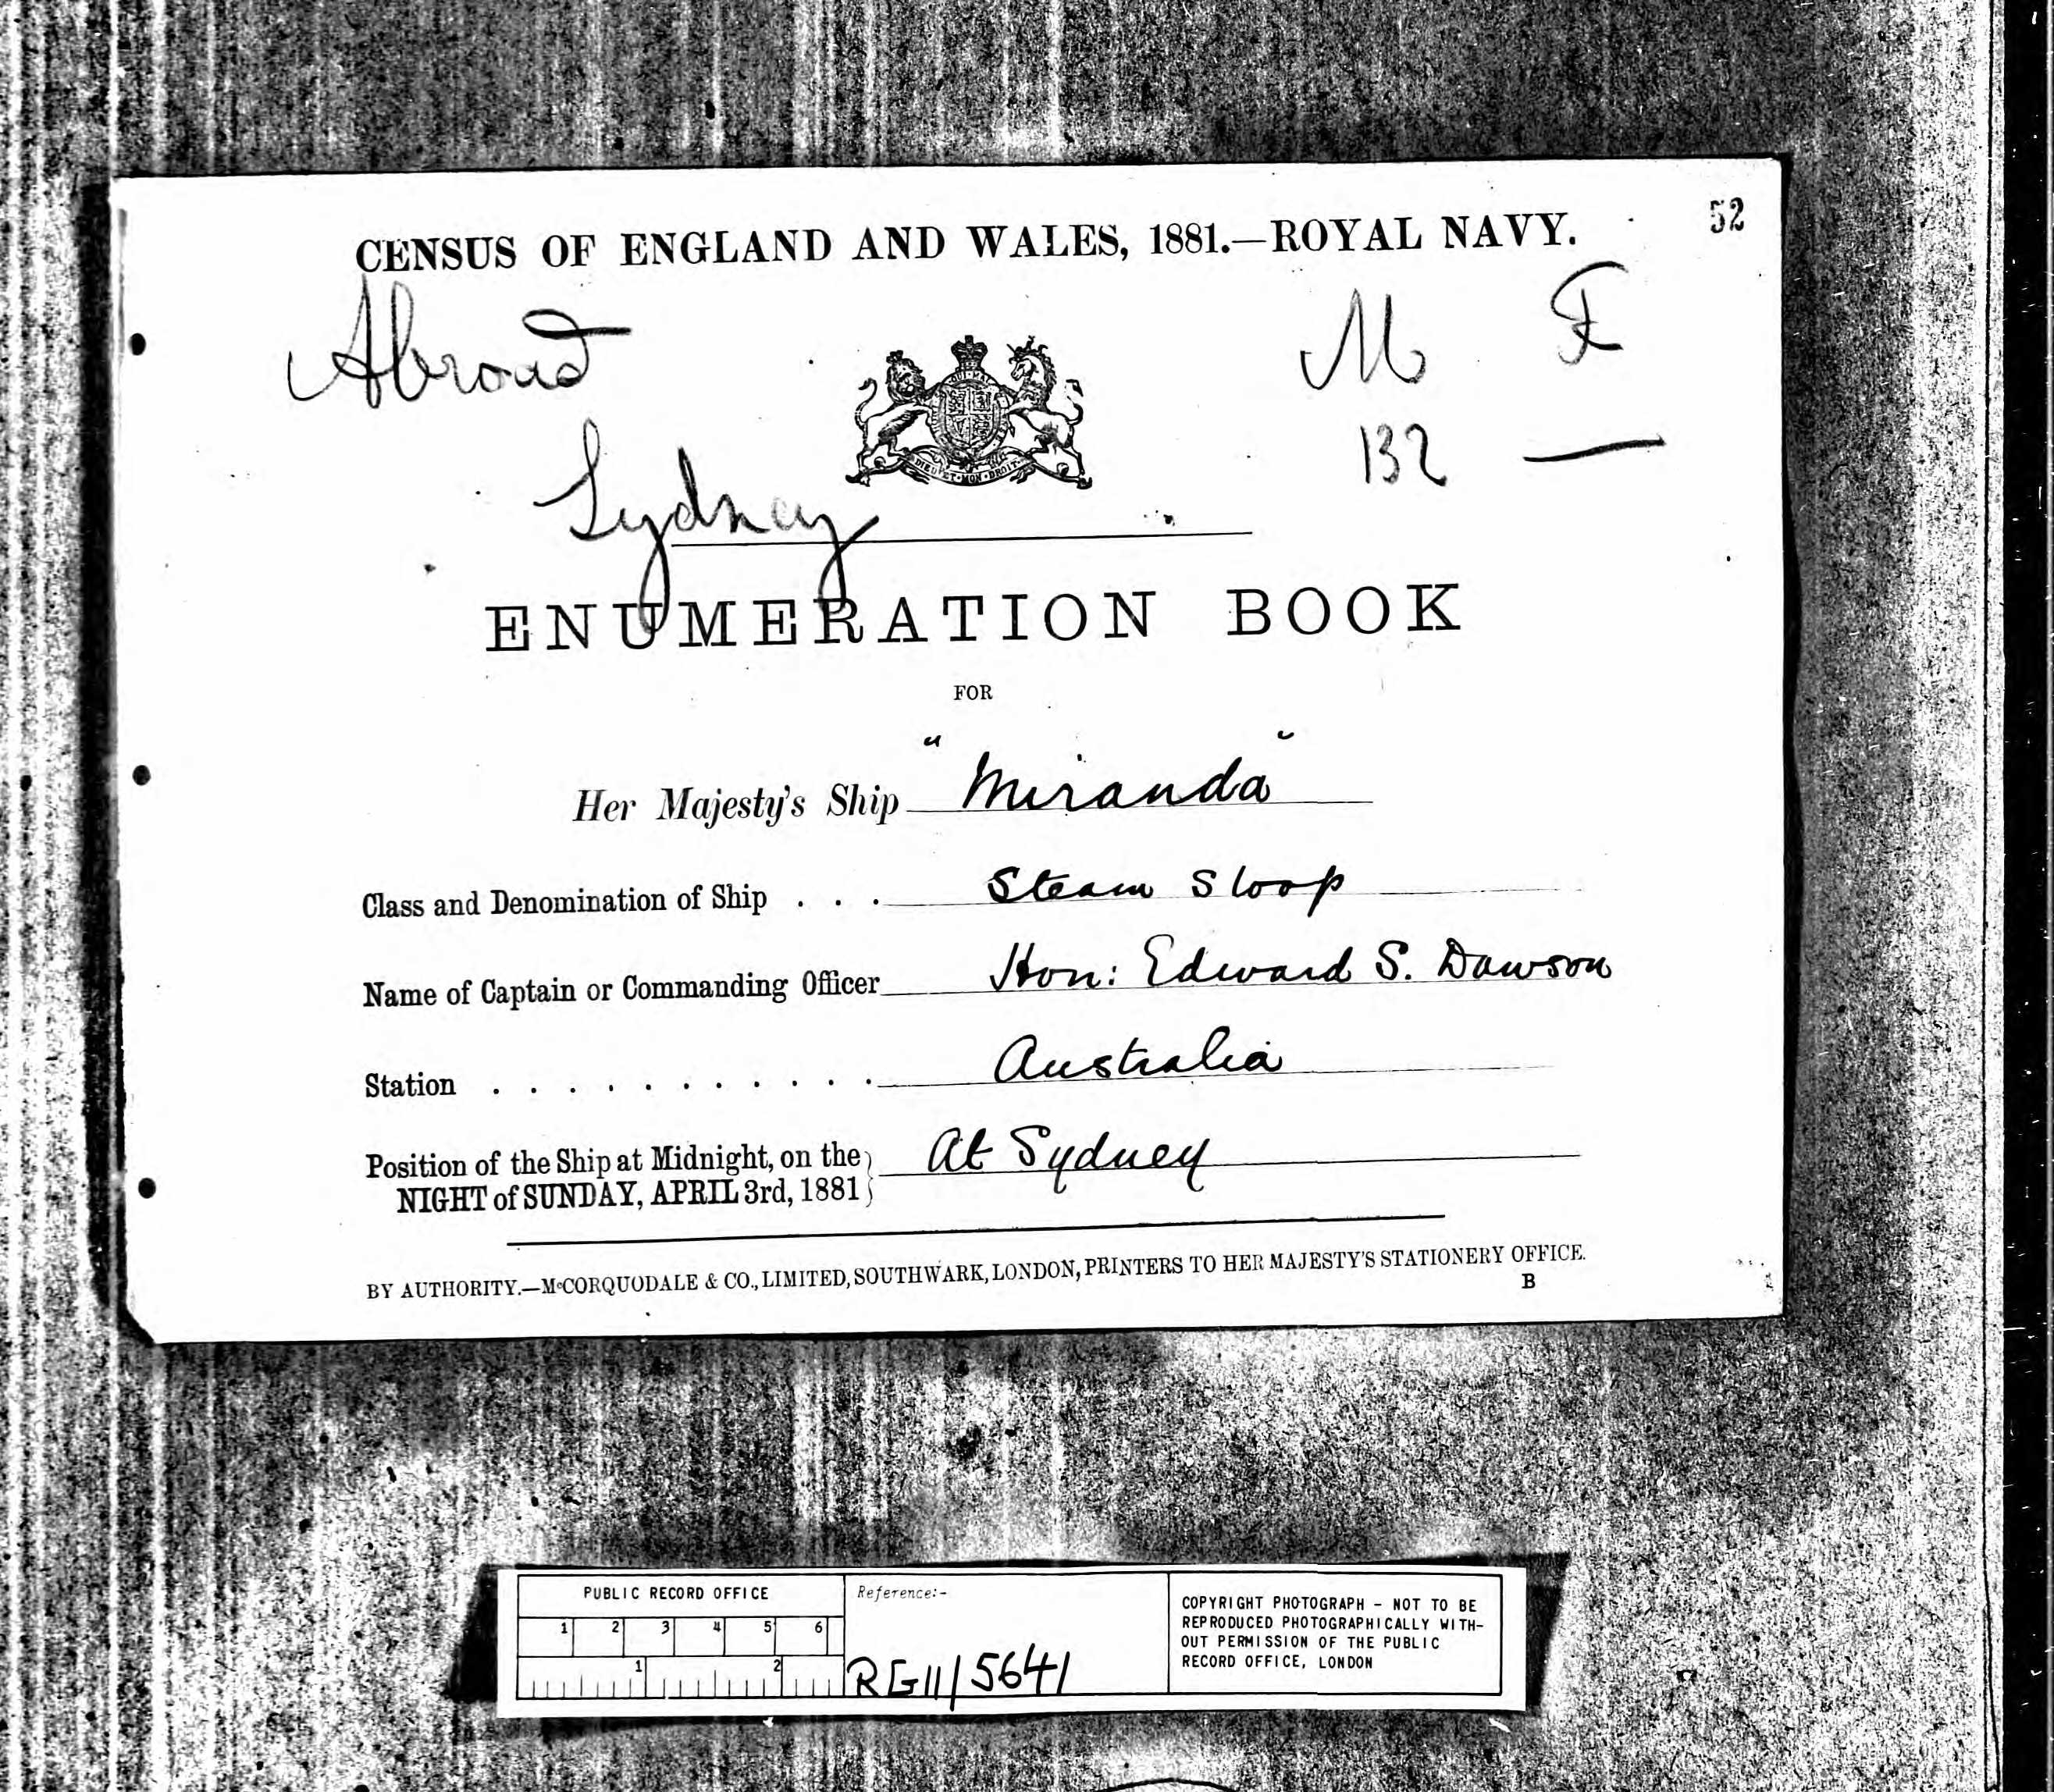 CENSUS OF ENGLAND AND WALES, 1881.—ROYAL NAVY.
52
Abroad
M F
132 —
Sydney
DIEU ET MON DROIT
ENUMERATION BOOK
FOR
Her Majesty's Ship "Miranda"
Class and Denomination of Ship . . . Steam Sloop
Name of Captain or Commanding Officer Hon: Edward S. Dawson
Station . . . . . . . . . . . Australia
Position of the Ship at Midnight, on the } At Sydney
NIGHT of SUNDAY, APRIL 3rd, 1881
BY AUTHORITY.—McCORQUODALE & CO., LIMITED, SOUTHWARK, LONDON, PRINTERS TO HER MAJESTY'S STATIONERY OFFICE.
B
PUBLIC RECORD OFFICE
1 2 3 4 5 6
1 2
Reference:-
RG11/5641
COPYRIGHT PHOTOGRAPH - NOT TO BE
REPRODUCED PHOTOGRAPHICALLY WITH-
OUT PERMISSION OF THE PUBLIC
RECORD OFFICE, LONDON